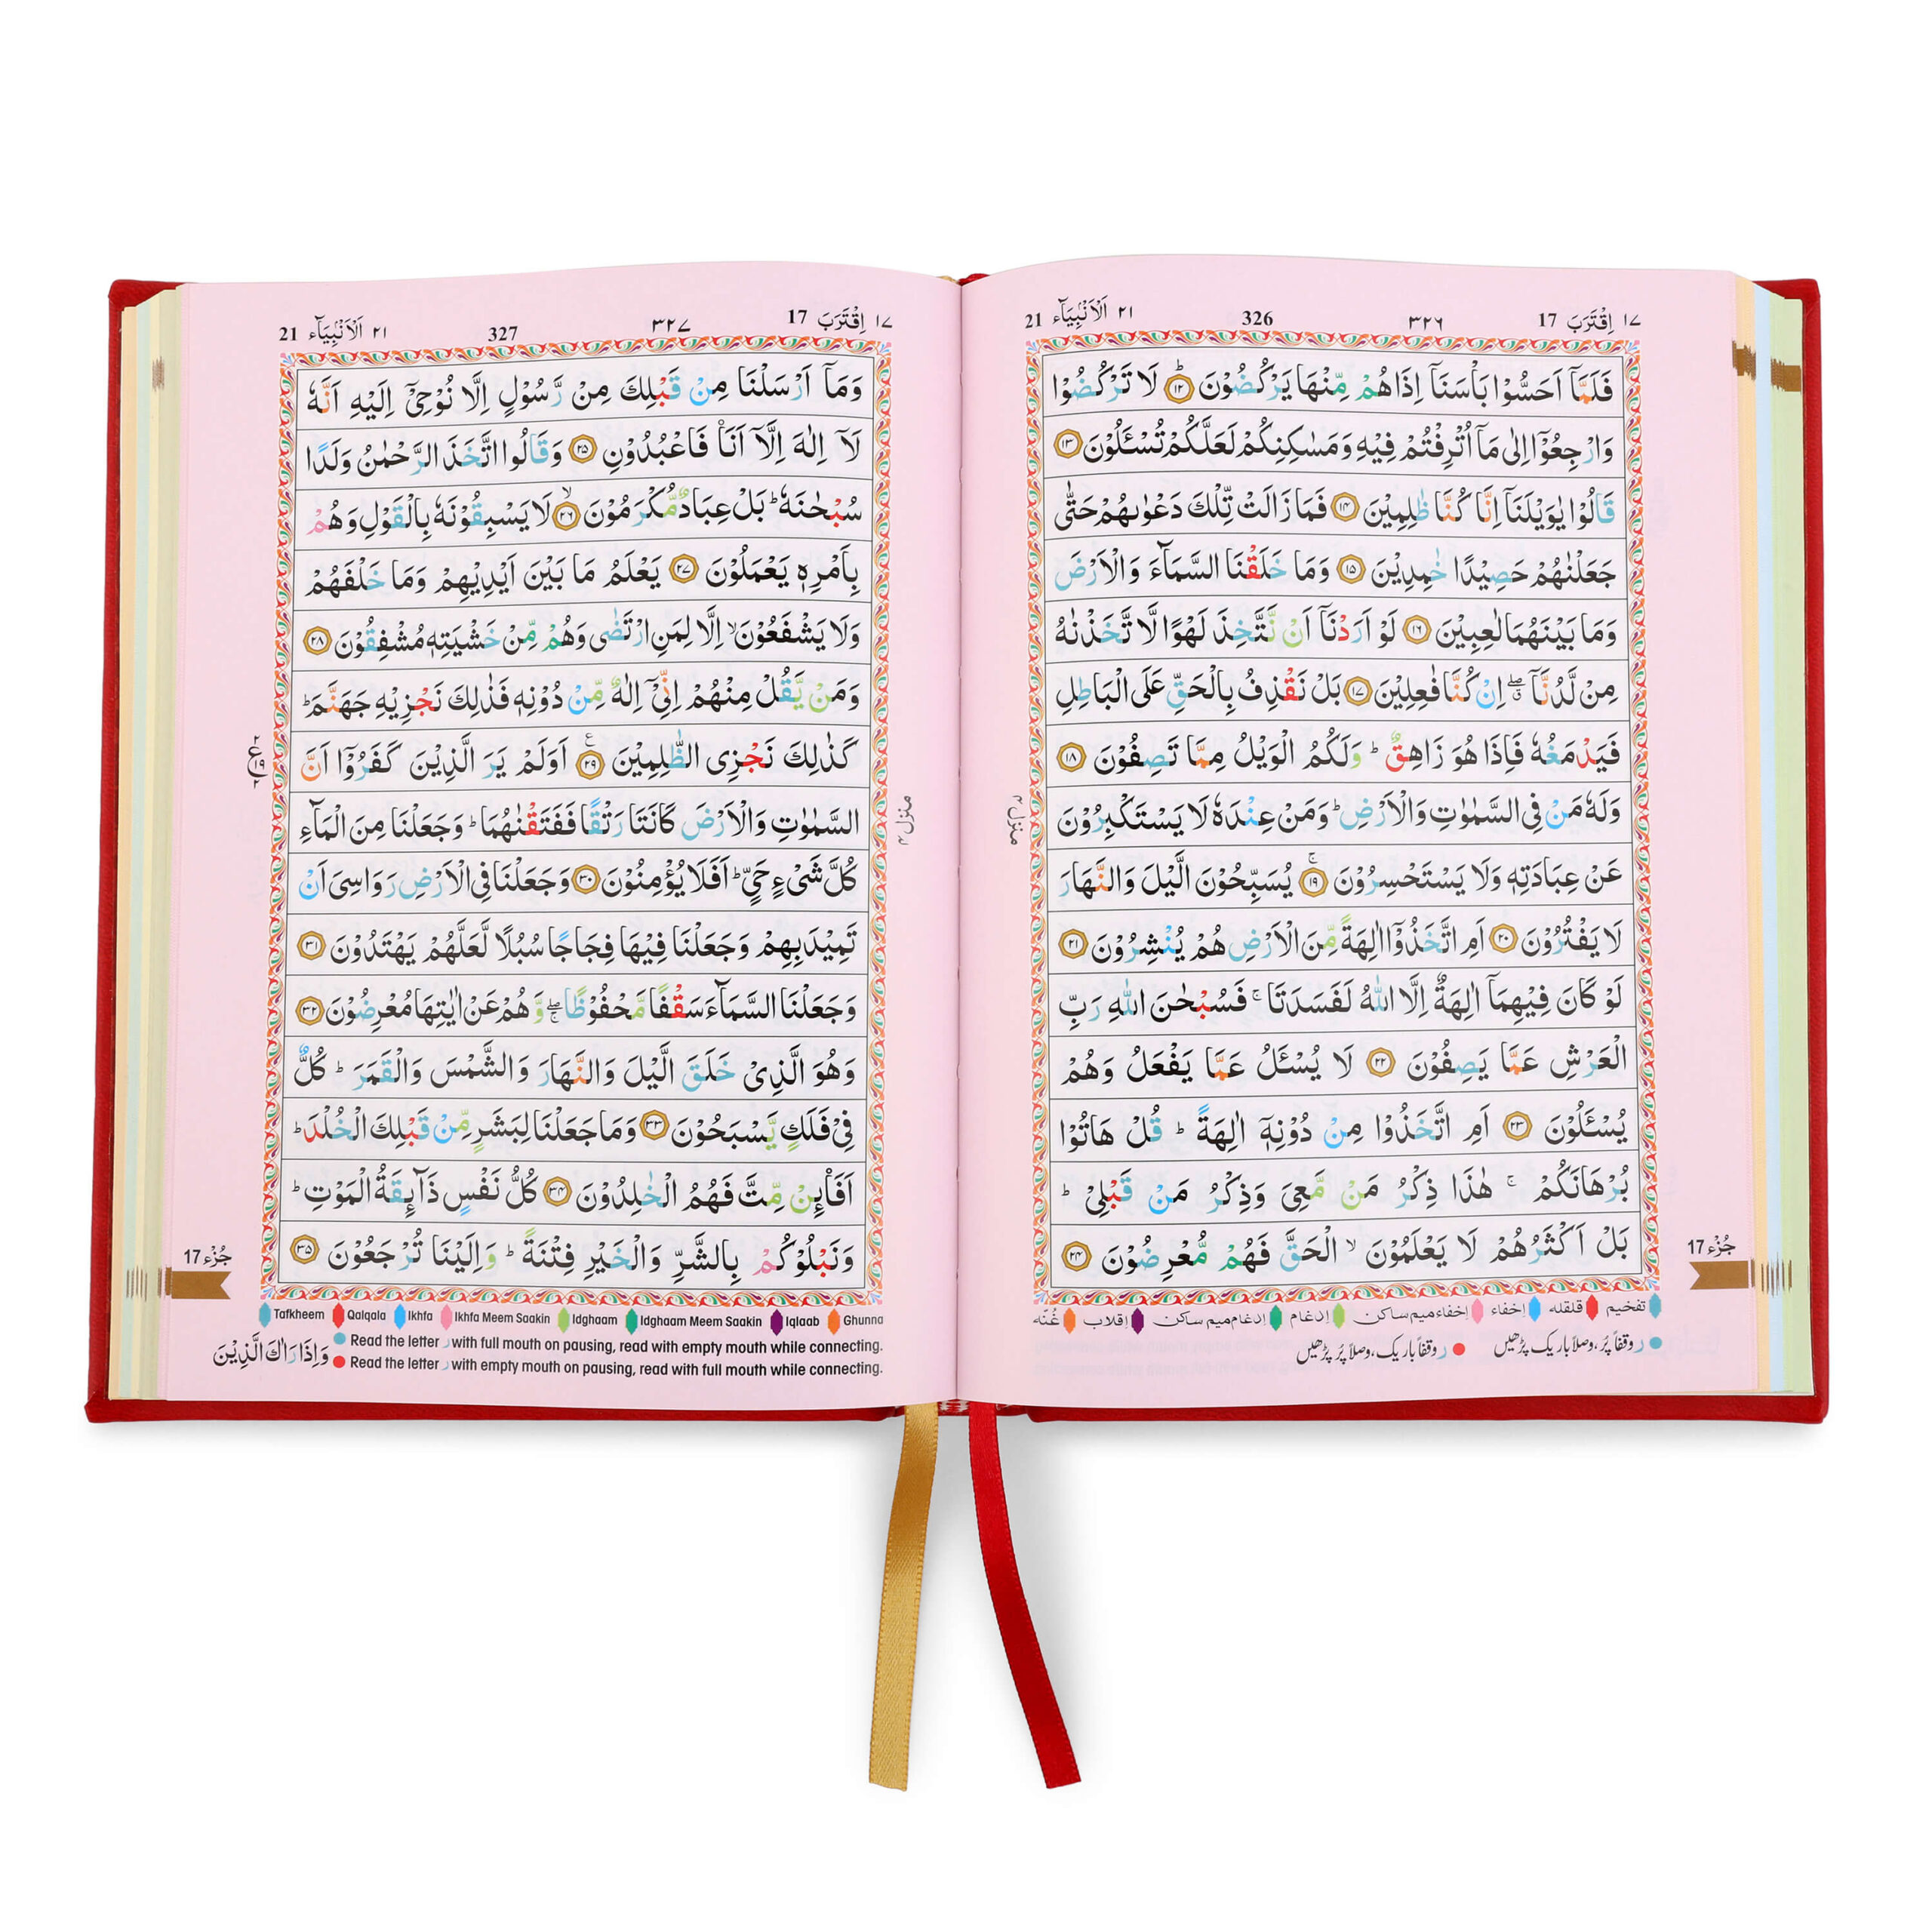 ١٧ اِقْتَرَبَ 17 ٣٢٦ 326 ٢١ اَلْاَنْۢبِيَآء 21
فَلَمَّاۤ اَحَسُّوْا بَاْسَنَاۤ اِذَا هُمْ مِّنْهَا يَرْكُضُوْنَ ؕ ١٢ لَا تَرْكُضُوْا
وَارْجِعُوْۤا اِلٰى مَاۤ اُتْرِفْتُمْ فِيْهِ وَمَسٰكِنِكُمْ لَعَلَّكُمْ تُسْـَٔلُوْنَ ١٣
قَالُوْا يٰوَيْلَنَاۤ اِنَّا كُنَّا ظٰلِمِيْنَ ١٤ فَمَا زَالَتْ تِّلْكَ دَعْوٰىهُمْ حَتّٰى
جَعَلْنٰهُمْ حَصِيْدًا خٰمِدِيْنَ ١٥ وَمَا خَلَقْنَا السَّمَآءَ وَالْاَرْضَ
وَمَا بَيْنَهُمَا لٰعِبِيْنَ ١٦ لَوْ اَرَدْنَاۤ اَنْ نَّتَّخِذَ لَهْوًا لَّا تَّخَذْنٰهُ
مِنْ لَّدُنَّاۤ ۖ اِنْ كُنَّا فٰعِلِيْنَ ١٧ بَلْ نَقْذِفُ بِالْحَقِّ عَلَى الْبَاطِلِ
فَيَدْمَغُهٗ فَاِذَا هُوَ زَاهِقٌ ؕ وَلَكُمُ الْوَيْلُ مِمَّا تَصِفُوْنَ ١٨
وَلَهٗ مَنْ فِى السَّمٰوٰتِ وَالْاَرْضِ ؕ وَمَنْ عِنْدَهٗ لَا يَسْتَكْبِرُوْنَ
عَنْ عِبَادَتِهٖ وَلَا يَسْتَحْسِرُوْنَ ۚ ١٩ يُسَبِّحُوْنَ الَّيْلَ وَالنَّهَارَ
لَا يَفْتُرُوْنَ ٢٠ اَمِ اتَّخَذُوْۤا اٰلِهَةً مِّنَ الْاَرْضِ هُمْ يُنْشِرُوْنَ ٢١
لَوْ كَانَ فِيْهِمَاۤ اٰلِهَةٌ اِلَّا اللّٰهُ لَفَسَدَتَا ۚ فَسُبْحٰنَ اللّٰهِ رَبِّ
الْعَرْشِ عَمَّا يَصِفُوْنَ ٢٢ لَا يُسْـَٔلُ عَمَّا يَفْعَلُ وَهُمْ
يُسْـَٔلُوْنَ ٢٣ اَمِ اتَّخَذُوْا مِنْ دُوْنِهٖۤ اٰلِهَةً ؕ قُلْ هَاتُوْا
بُرْهَانَكُمْ ۚ هٰذَا ذِكْرُ مَنْ مَّعِىَ وَذِكْرُ مَنْ قَبْلِىْ ؕ
بَلْ اَكْثَرُهُمْ لَا يَعْلَمُوْنَ ۙ الْحَقَّ فَهُمْ مُّعْرِضُوْنَ ٢٤
منزل ٤
جُزْء 17
تفخیم قلقلہ اِخفاء اِخفاء میم ساکن اِدغام اِدغام میم ساکن اِقلاب غُنّہ
ر وقفاً پُر، وصلاً باریک پڑھیں ر وقفاً باریک، وصلاً پُر پڑھیں
١٧ اِقْتَرَبَ 17 ٣٢٧ 327 ٢١ اَلْاَنْۢبِيَآء 21
وَمَاۤ اَرْسَلْنَا مِنْ قَبْلِكَ مِنْ رَّسُوْلٍ اِلَّا نُوْحِىْۤ اِلَيْهِ اَنَّهٗ
لَاۤ اِلٰهَ اِلَّاۤ اَنَا فَاعْبُدُوْنِ ٢٥ وَقَالُوا اتَّخَذَ الرَّحْمٰنُ وَلَدًا
سُبْحٰنَهٗ ؕ بَلْ عِبَادٌ مُّكْرَمُوْنَ ۙ ٢٦ لَا يَسْبِقُوْنَهٗ بِالْقَوْلِ وَهُمْ
بِاَمْرِهٖ يَعْمَلُوْنَ ٢٧ يَعْلَمُ مَا بَيْنَ اَيْدِيْهِمْ وَمَا خَلْفَهُمْ
وَلَا يَشْفَعُوْنَ ۙ اِلَّا لِمَنِ ارْتَضٰى وَهُمْ مِّنْ خَشْيَتِهٖ مُشْفِقُوْنَ ٢٨
وَمَنْ يَّقُلْ مِنْهُمْ اِنِّىْۤ اِلٰهٌ مِّنْ دُوْنِهٖ فَذٰلِكَ نَجْزِيْهِ جَهَنَّمَ ؕ
كَذٰلِكَ نَجْزِى الظّٰلِمِيْنَ ٢٩ اَوَلَمْ يَرَ الَّذِيْنَ كَفَرُوْۤا اَنَّ
السَّمٰوٰتِ وَالْاَرْضَ كَانَتَا رَتْقًا فَفَتَقْنٰهُمَا ؕ وَجَعَلْنَا مِنَ الْمَآءِ
كُلَّ شَىْءٍ حَىٍّ ؕ اَفَلَا يُؤْمِنُوْنَ ٣٠ وَجَعَلْنَا فِى الْاَرْضِ رَوَاسِىَ اَنْ
تَمِيْدَ بِهِمْ وَجَعَلْنَا فِيْهَا فِجَاجًا سُبُلًا لَّعَلَّهُمْ يَهْتَدُوْنَ ٣١
وَجَعَلْنَا السَّمَآءَ سَقْفًا مَّحْفُوْظًا ۖ وَّهُمْ عَنْ اٰيٰتِهَا مُعْرِضُوْنَ ٣٢
وَهُوَ الَّذِىْ خَلَقَ الَّيْلَ وَالنَّهَارَ وَالشَّمْسَ وَالْقَمَرَ ؕ كُلٌّ
فِىْ فَلَكٍ يَّسْبَحُوْنَ ٣٣ وَمَا جَعَلْنَا لِبَشَرٍ مِّنْ قَبْلِكَ الْخُلْدَ ؕ
اَفَا۟ئِنْ مِّتَّ فَهُمُ الْخٰلِدُوْنَ ٣٤ كُلُّ نَفْسٍ ذَآئِقَةُ الْمَوْتِ ؕ
وَنَبْلُوْكُمْ بِالشَّرِّ وَالْخَيْرِ فِتْنَةً ؕ وَاِلَيْنَا تُرْجَعُوْنَ ٣٥
منزل ٤
ع ٢ ١٩ ٢
جُزْء 17
Tafkheem Qalqala Ikhfa Ikhfa Meem Saakin Idghaam Idghaam Meem Saakin Iqlaab Ghunna
Read the letter ر with full mouth on pausing, read with empty mouth while connecting.
Read the letter ر with empty mouth on pausing, read with full mouth while connecting.
وَاِذَا رَاٰكَ الَّذِيْنَ